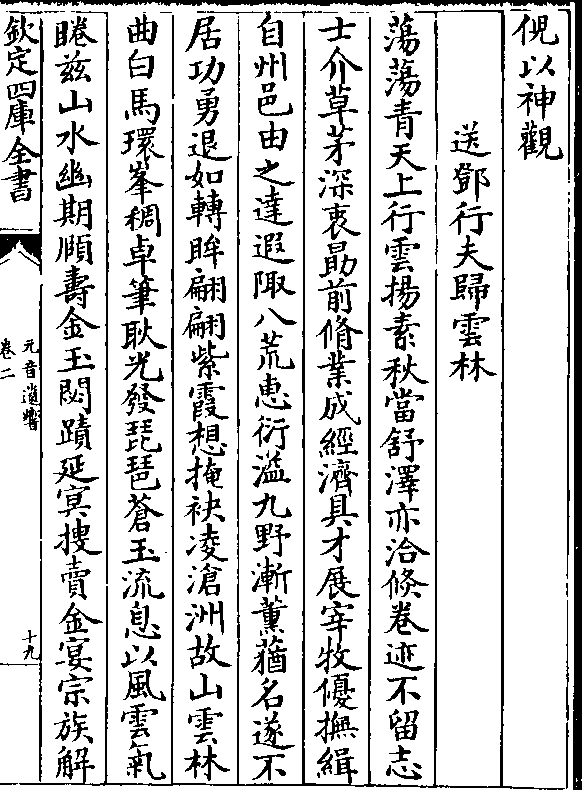 倪以神觀
送鄧行夫歸雲林
蕩蕩青天上行雲揚素秋當舒澤亦洽倐卷迹不留志
士介草茅深衷勗前脩業成經濟具才展宰牧優撫緝
自州邑由之達遐陬八荒恵衍溢九野漸薰蕕名遂不
居功勇退如轉眸翩翩紫霞想掩袂凌滄洲故山雲林
曲白馬環峯稠卓筆耿光發琵琶蒼玉流息以風雲氣
睠兹山水幽期頤壽金玉閟蹟延冥搜賣金宴宗族解
欽定四庫全書
元音遺響
卷二
十九